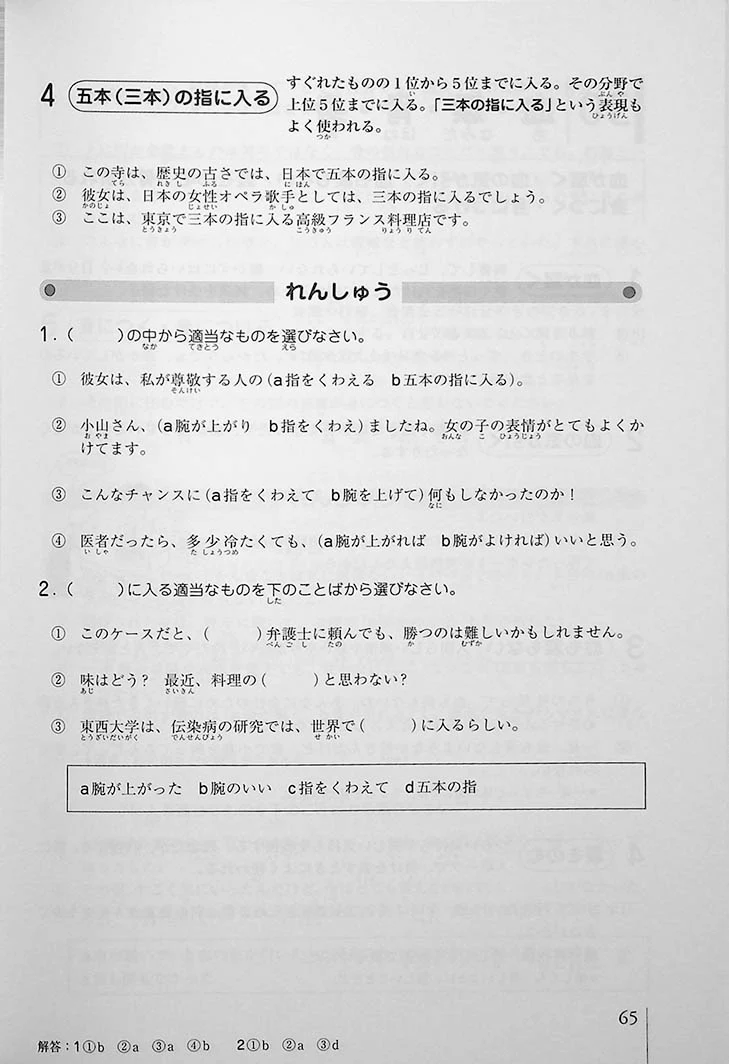 4 五本(三本)の指に入る
すぐれたものの1位から5位までに入る。その分野で
上位5位までに入る。「三本の指に入る」という表現も
よく使われる。
① この寺は、歴史の古さでは、日本で五本の指に入る。
② 彼女は、日本の女性オペラ歌手としては、三本の指に入るでしょう。
③ ここは、東京で三本の指に入る高級フランス料理店です。
れんしゅう
1.(　　)の中から適当なものを選びなさい。
① 彼女は、私が尊敬する人の(a指をくわえる　b五本の指に入る)。
② 小山さん、(a腕が上がり　b指をくわえ)ましたね。女の子の表情がとてもよくか
けてます。
③ こんなチャンスに(a指をくわえて　b腕を上げて)何もしなかったのか!
④ 医者だったら、多少冷たくても、(a腕が上がれば　b腕がよければ)いいと思う。
2.(　　)に入る適当なものを下のことばから選びなさい。
① このケースだと、(　　)弁護士に頼んでも、勝つのは難しいかもしれません。
② 味はどう? 最近、料理の(　　)と思わない?
③ 東西大学は、伝染病の研究では、世界で(　　)に入るらしい。
a腕が上がった　b腕のいい　c指をくわえて　d五本の指
65
解答:1①b　②a　③a　④b　2①b　②a　③d